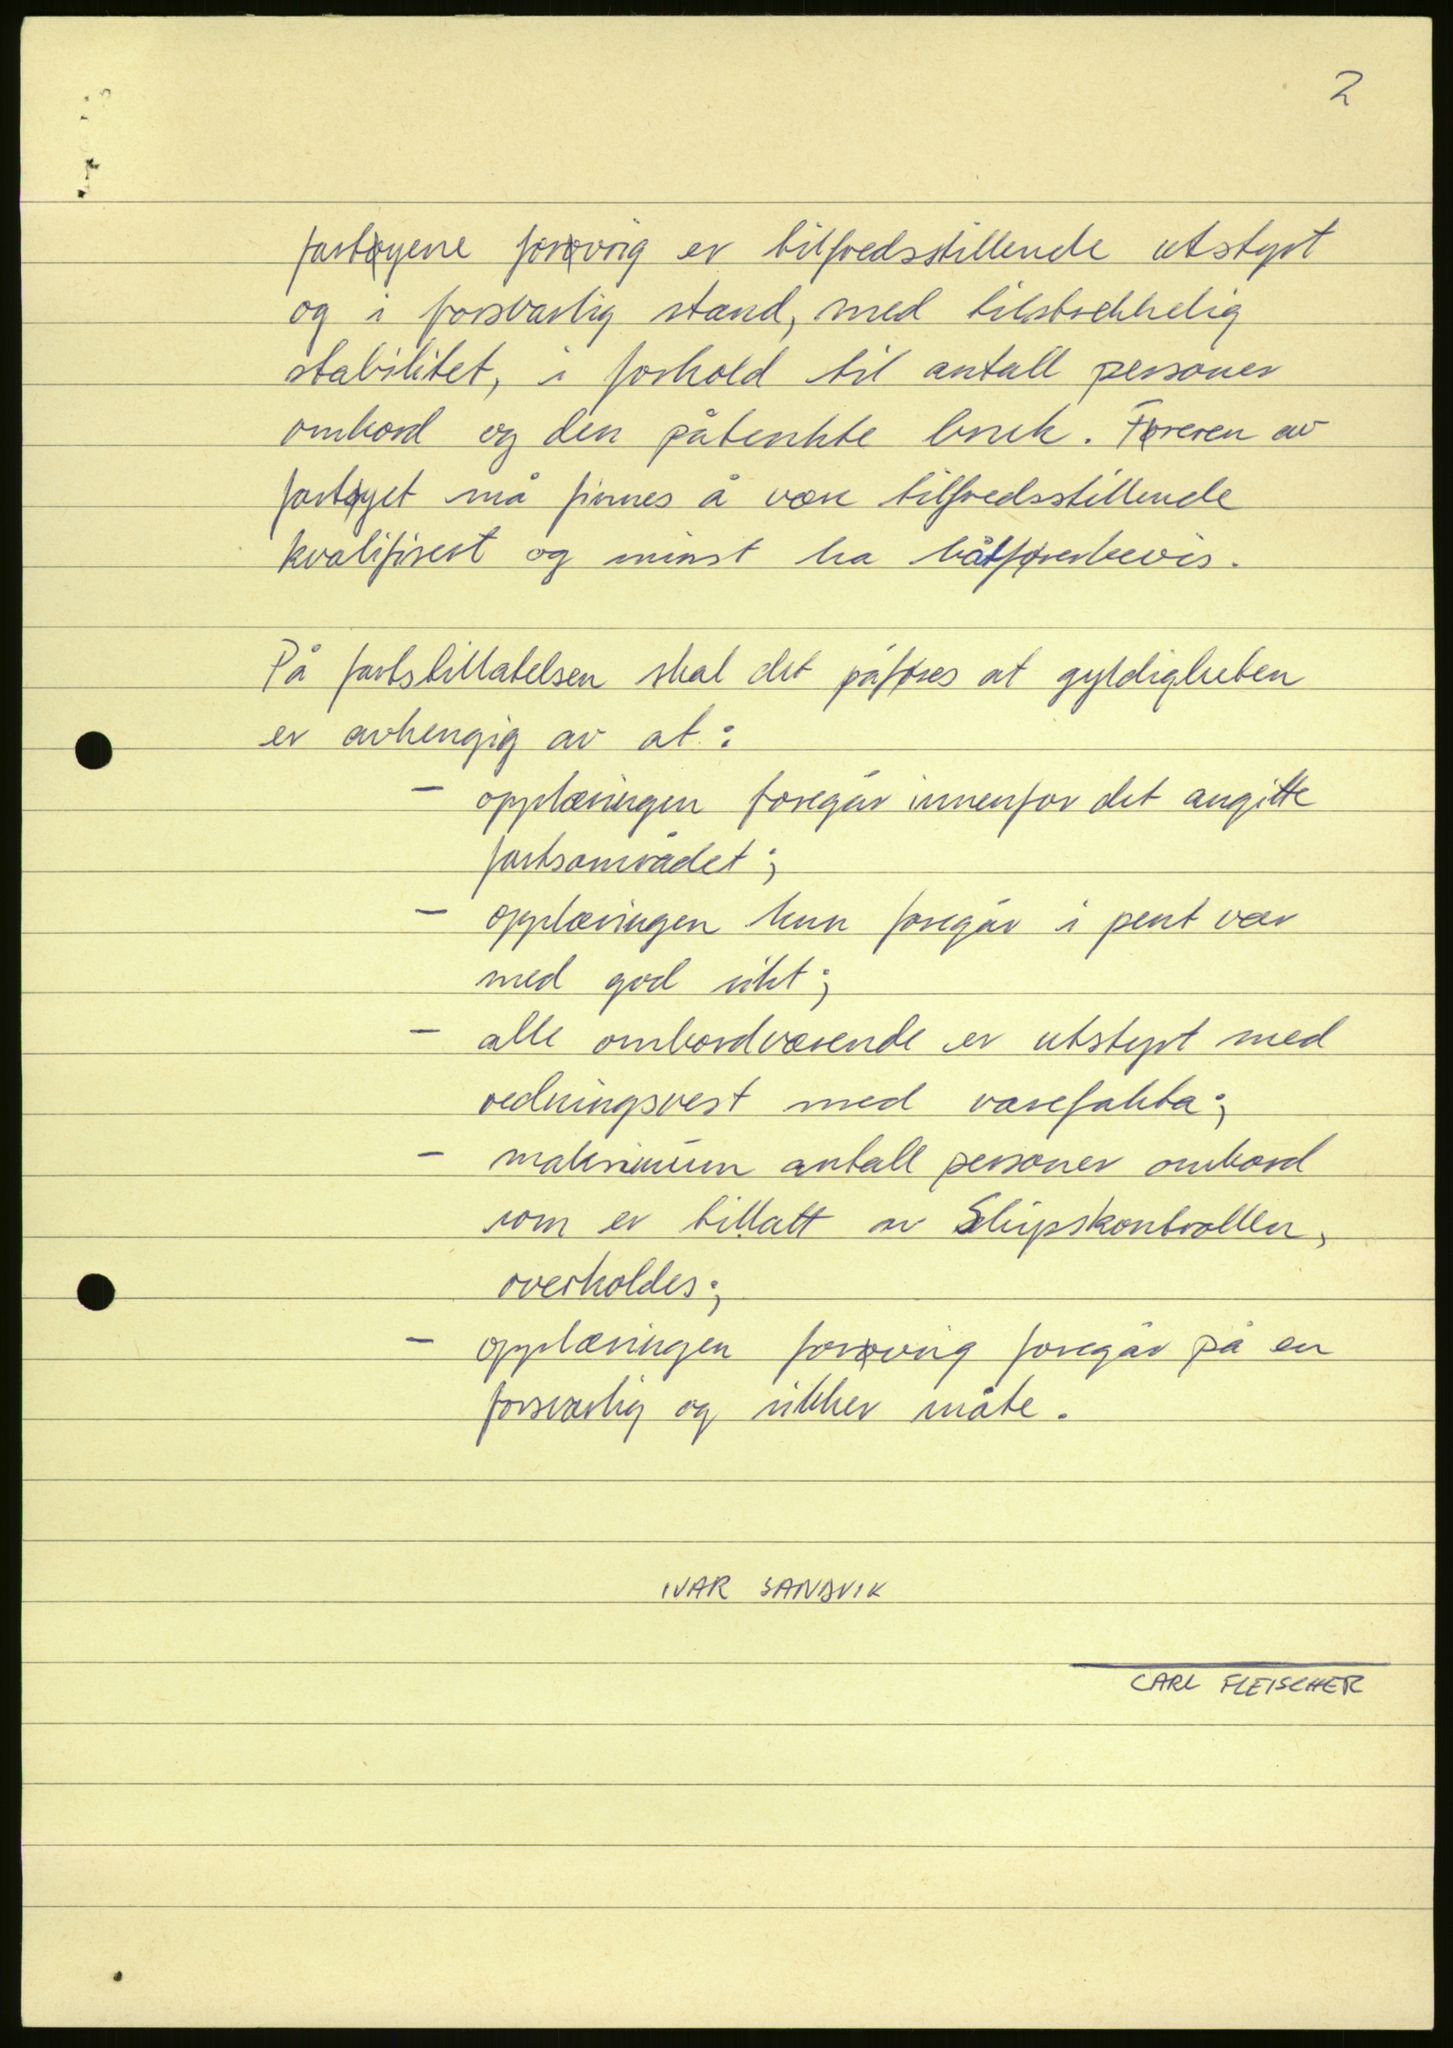 2
fartøyene forøvrig er tilfredsstillende utstyrt
og i forsvarlig stand, med tilstrekkelig
stabilitet, i forhold til antall personer
ombord og den påtenkte bruk. Føreren av
fartøyet må finnes å være tilfredsstillende
kvalifisert og minst ha båtførerbevis.
På fartstillatelsen skal det påføres at gyldigheten
er avhengig av at:
- opplæringen foregår innenfor det angitte
fartsområdet;
- opplæringen kun foregår i pent vær
med god sikt;
- alle ombordværende er utstyrt med
redningsvest med varefakta;
- maksimum antall personer ombord
som er tillatt av Skipskontrollen,
overholdes;
- opplæringen forøvrig foregår på en
forsvarlig og sikker måte.
IVAR SANDVIK
CARL FLEISCHER